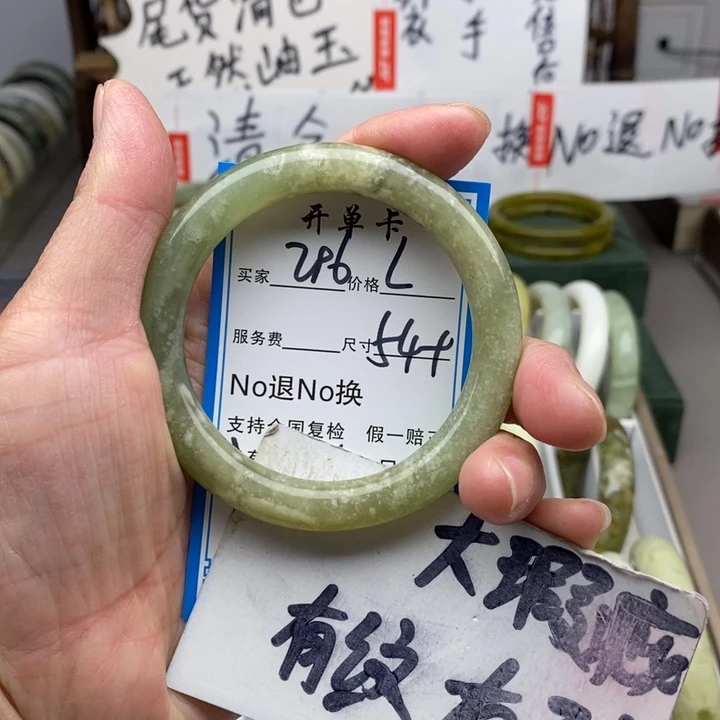 尾货清仓
天然岫玉
手
售后
清仓
换No退No换
开单卡
买家 296 价格 L
服务费 尺寸 544
No退No换
支持全国复检 假一赔
大瑕疵
有纹
有